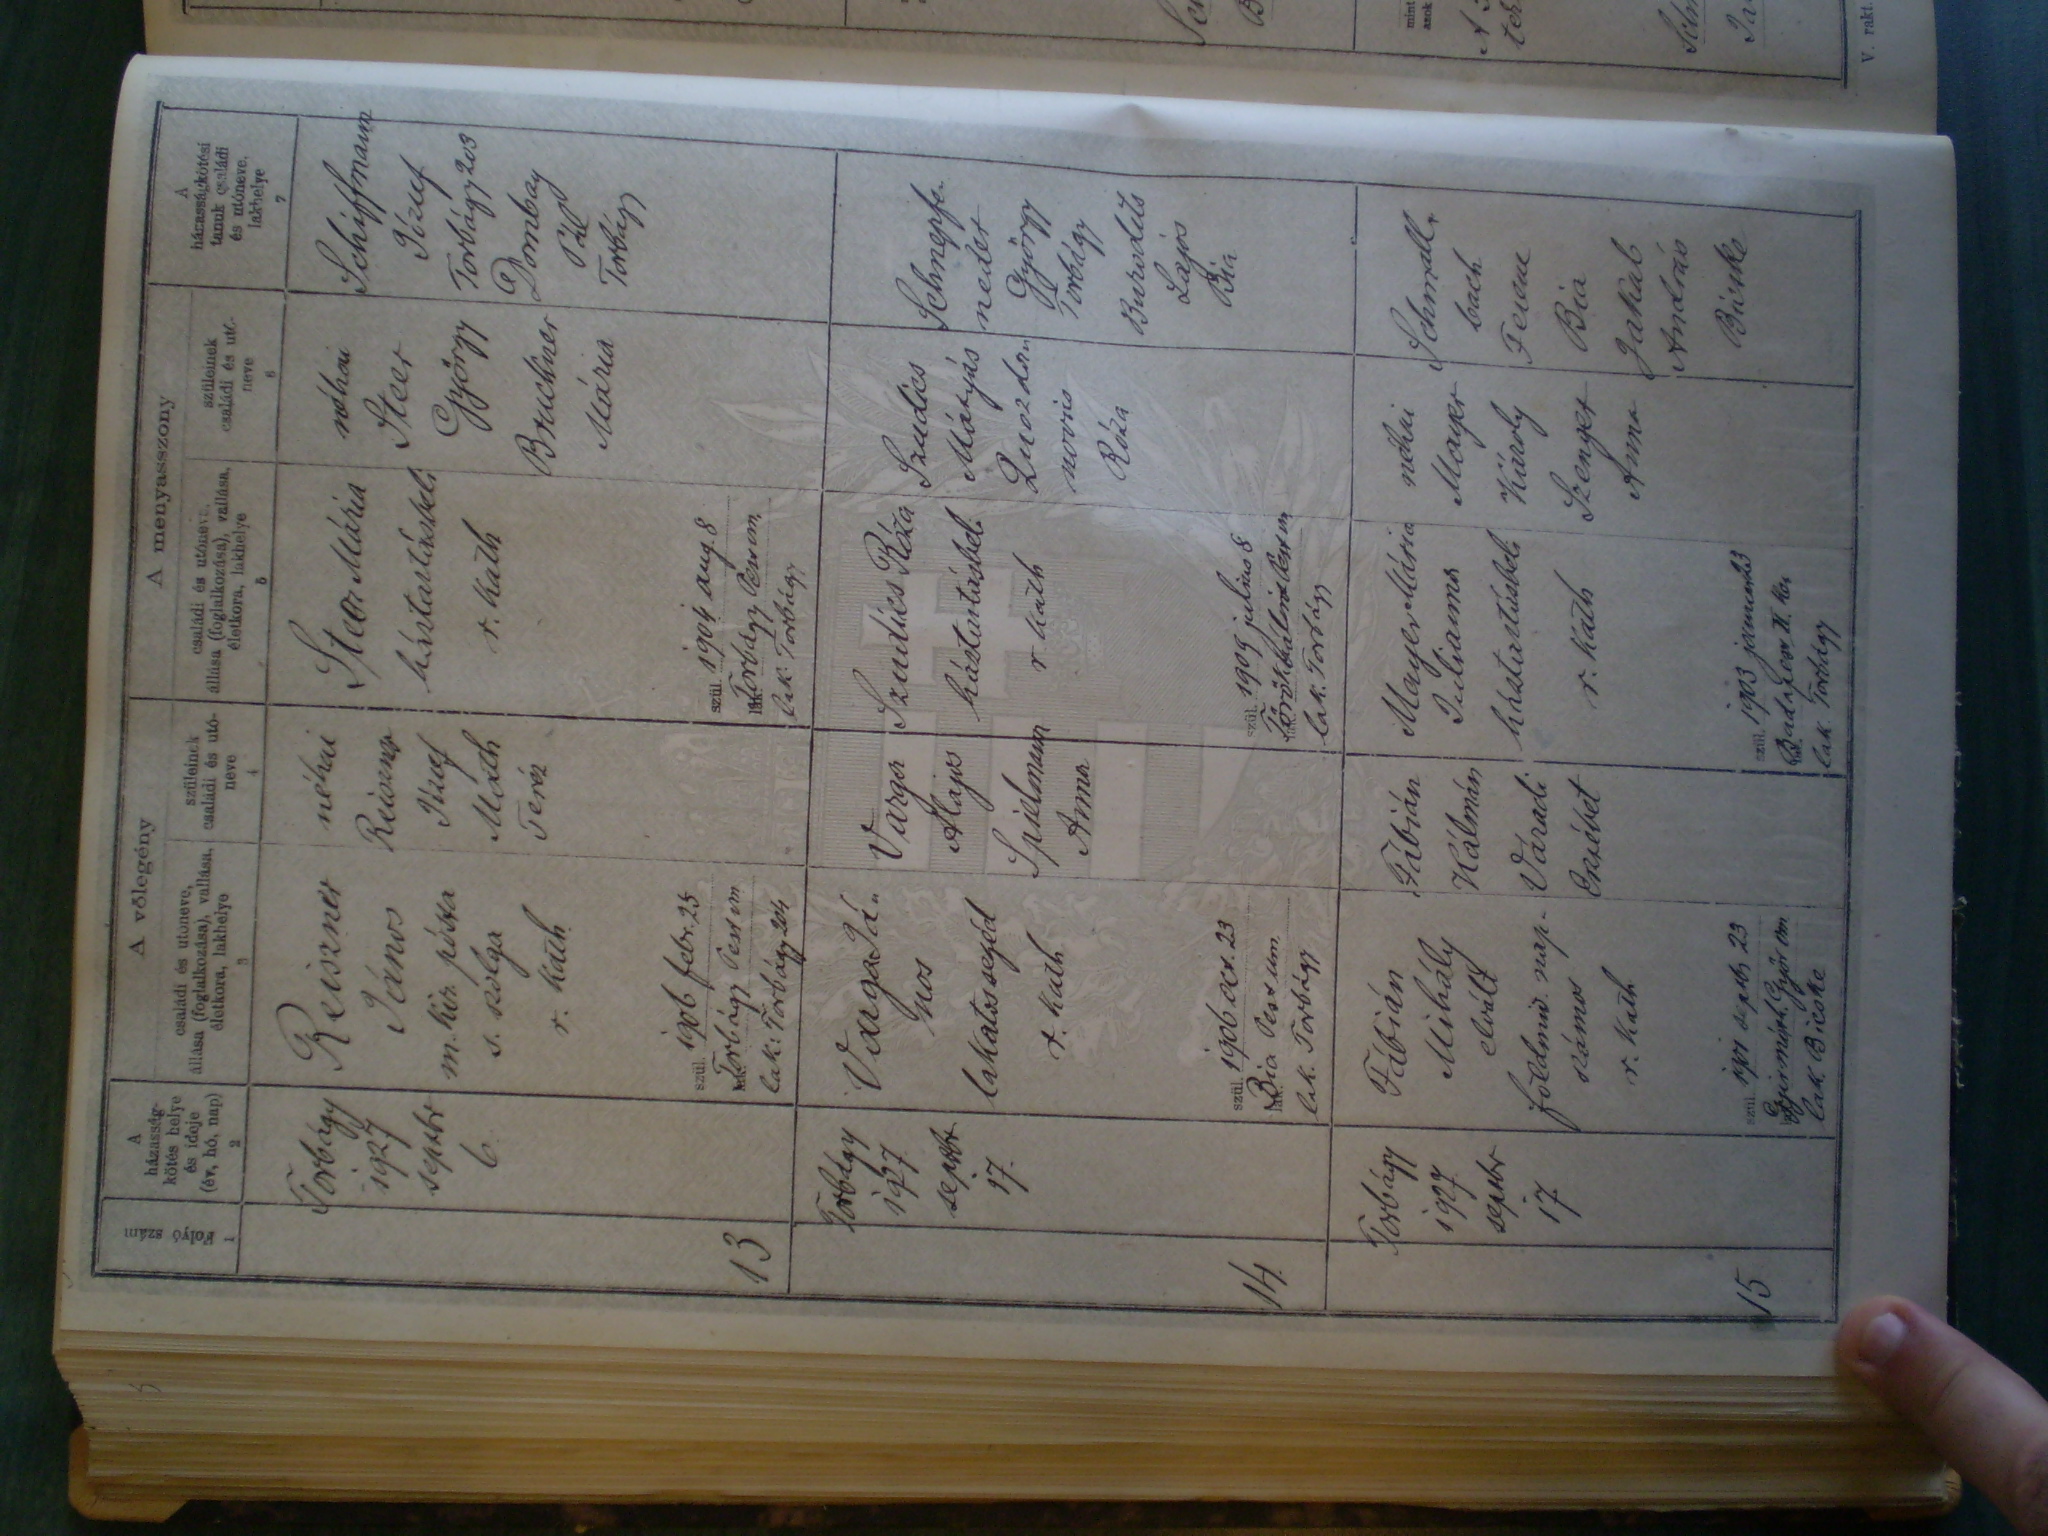 A menyasszony
A vőlegény
Folyó szám
1
A
házasság-
kötés helye
és ideje
(év, hó, nap)
2
családi és utóneve,
állása (foglalkozása), vallása,
életkora, lakhelye
3
szüleinek
családi és utó-
neve
4
családi és utóneve,
állása (foglalkozása), vallása,
életkora, lakhelye
5
szüleinek
családi és utó-
neve
6
A
házasságkötési
tanuk családi
és utóneve,
lakhelye
7
13
Torbágy
1927
septbr
6.
Reiszner
János
m. kir. posta
s. szolga
r. kath.
szül. 1906 febr. 25
Torbágy Pest vm
lak: Torbágy 204
néhai
Reiszner
József
Máth
Teréz
Steer Mária
háztartásbeli
r. kath
szül. 1904 aug. 8
Torbágy Pest vm.
lak: Torbágy
néhai
Steer
György
Bruckner
Mária
Schiffmann
József
Torbágy 203
Dombay
Pál
Torbágy
14.
Torbágy
1927
septbr
17.
Varga Já-
nos
lakatossegéd
r. kath
szül. 1906 oct. 23
Bia Pest vm.
lak. Torbágy
Varga
Alajos
Spielmann
Anna
Szudics Róza
háztartásbeli
r. kath
szül. 1909 julius 8
Törökbálint Pest vm
lak. Torbágy
Szudics
Mátyás
novics
Róza
Schnepfe-
neder
György
Torbágy
Lajos
Bia
15
Torbágy
1927
septbr
17
Fábián
Mihály
elvált
földmű. nap-
számos
r. kath
szül. 1901 septb 23
Gyirmót Győr vm
lak. Bicske
Fábián
Kálmán
Váradi
Erzsébet
Mayer Mária
Julianna
háztartásbeli
r. kath
szül. 1903 január 23
Budapest II. ker
lak. Torbágy
néhai
Mayer
Károly
Szenger
Anna
Schmall-
bach
Ferenc
Bia
Jakab
András
Bicske
V. rakt.